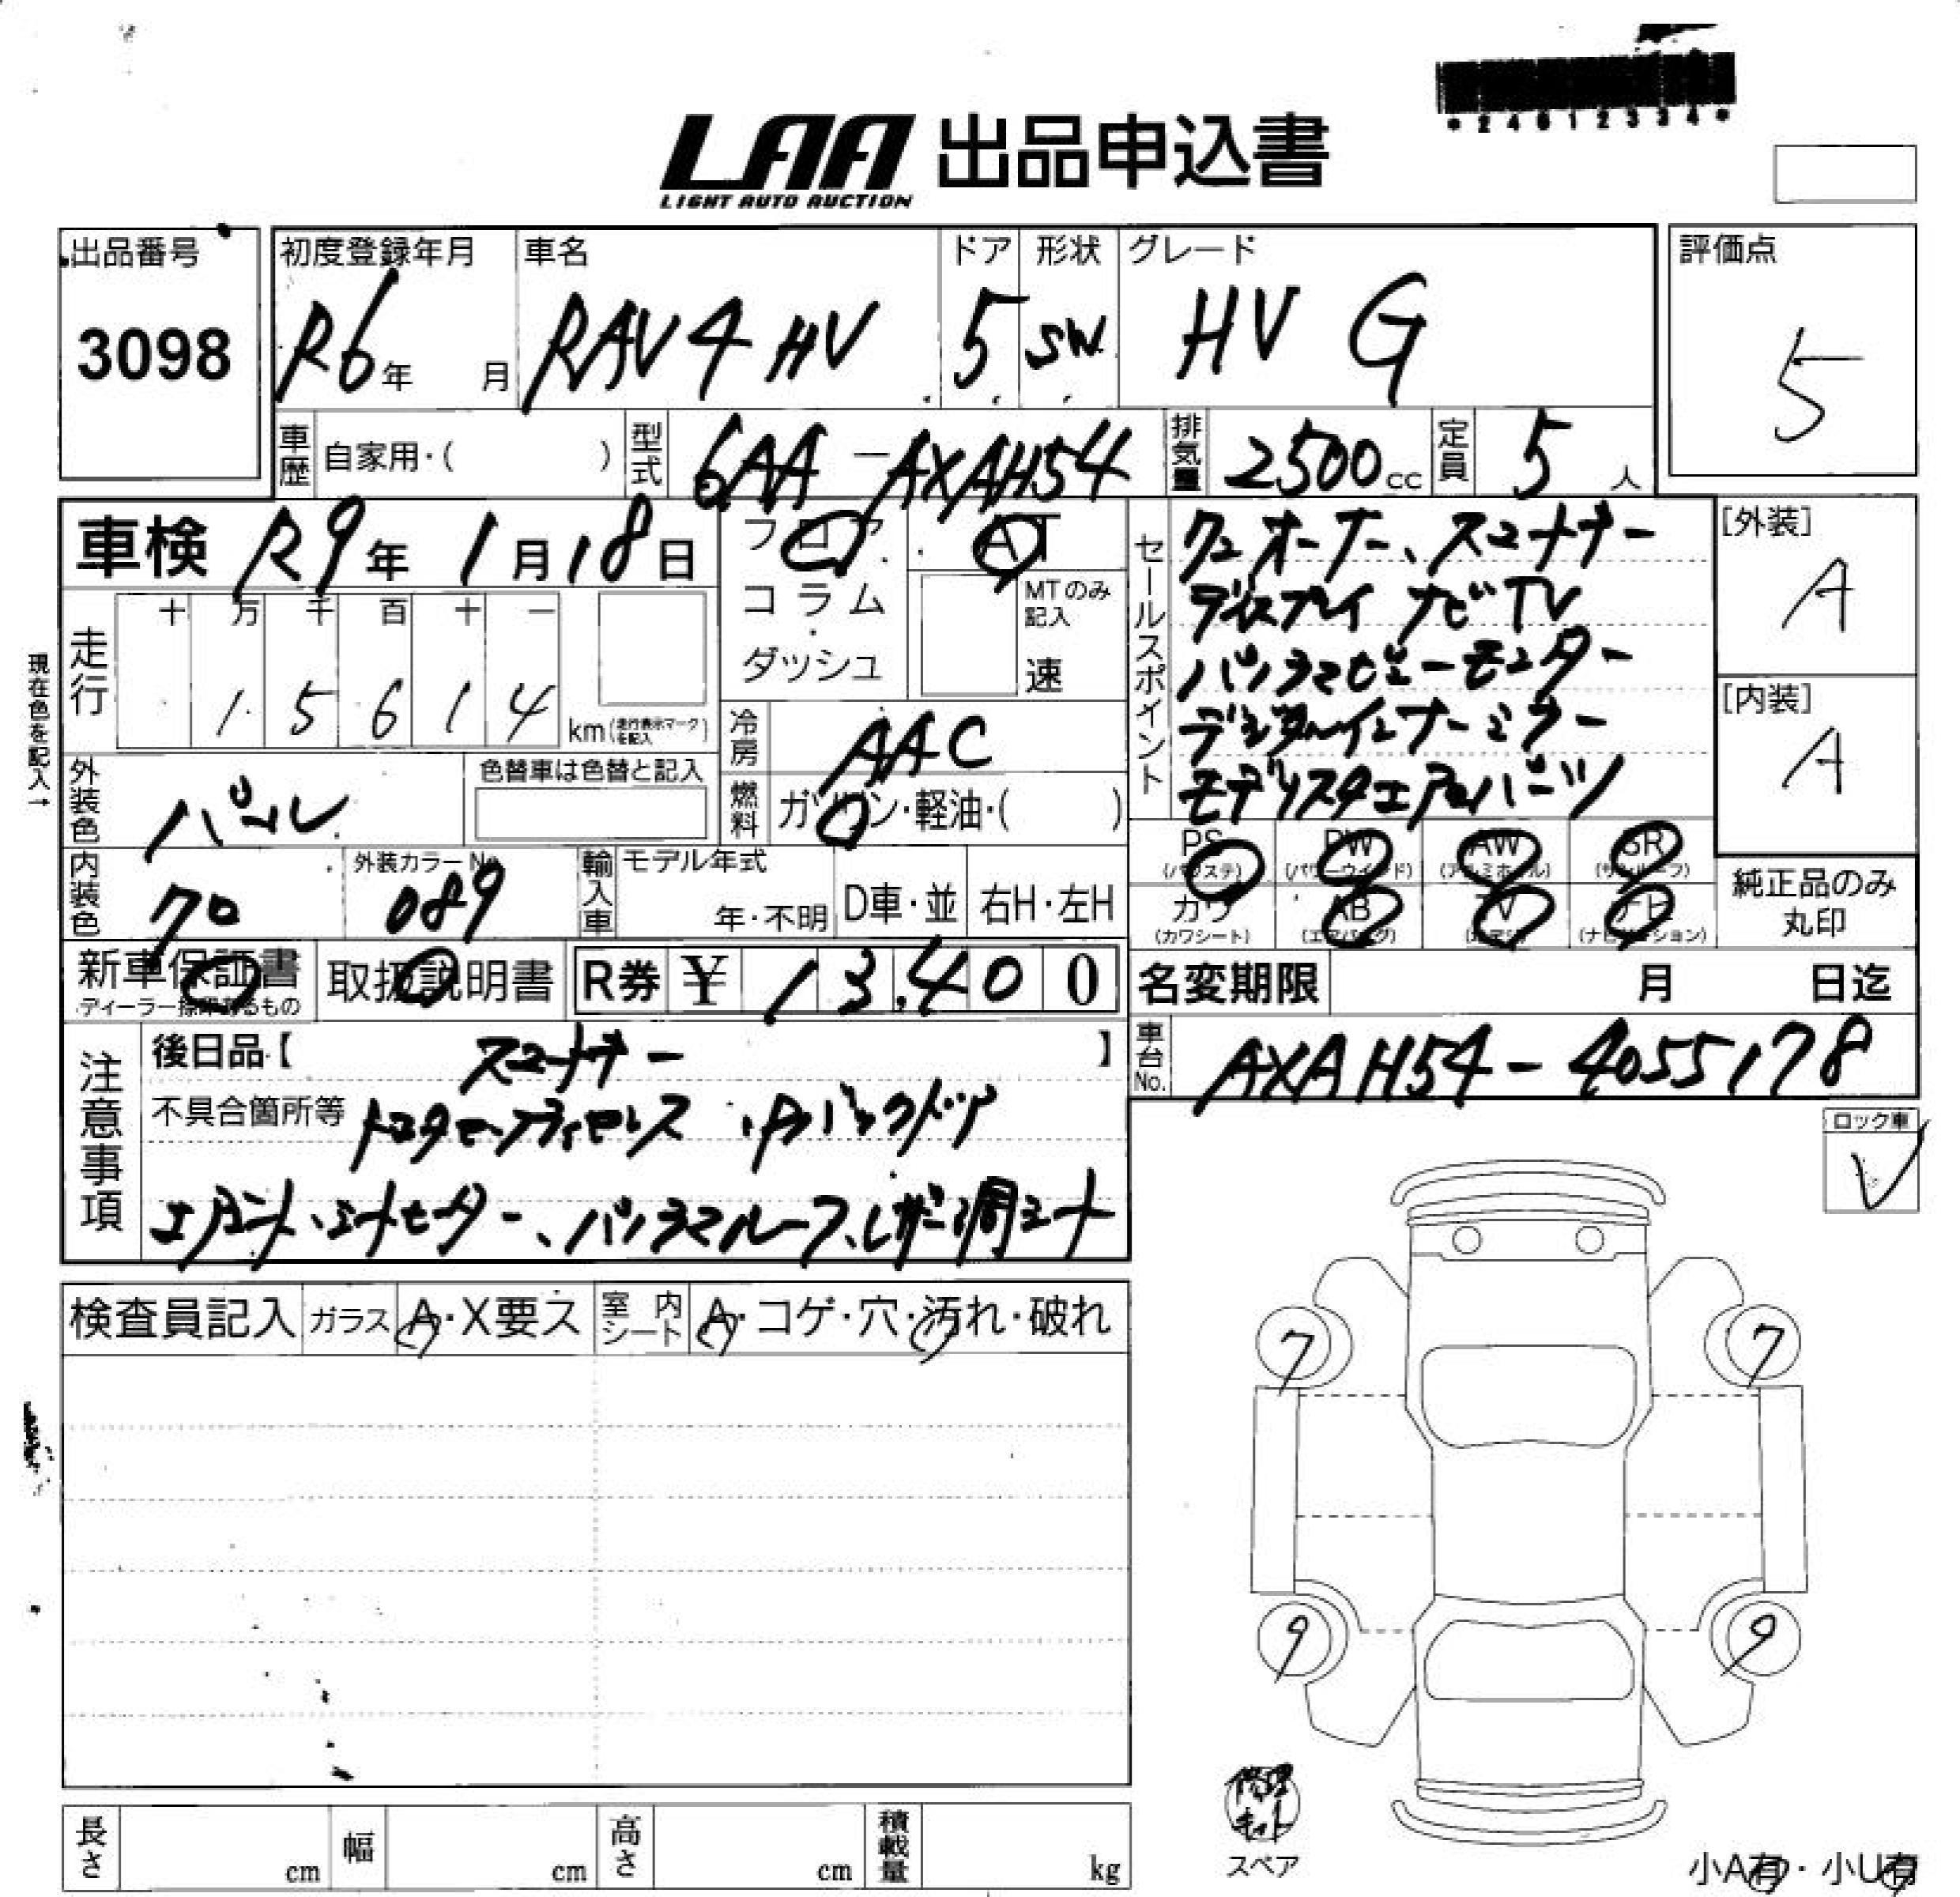 *24012334*
LAA 出品申込書
LIGHT AUTO AUCTION
出品番号 初度登録年月 車名 ドア 形状 グレード 評価点
3098 R6年 月 RAV4 HV 5 SW HV G 5
車歴 自家用・( ) 型式 6AA-AXAH54 排気量 2500cc 定員 5人
車検 R9年1月18日
フロア AT
コラム MTのみ記入
ダッシュ 速
現在色を記入→
走行 十 万 千 百 十 一
1 5 6 1 4 km(走行表示マークを記入)
冷房 AAC
外装色 パール 色替車は色替と記入
燃料 ガソリン・軽油・( )
内装色 クロ 外装カラーNo. 089
輸入車 モデル年式 年・不明 D車・並 右H・左H
セールスポイント ワンオーナー、スマートキー
ディスプレイ ナビ TV
パノラマビューモニター
デジタルインナーミラー
モデリスタエアロパーツ
[外装]
A
[内装]
A
PS (パワステ) PW (パワーウインド) AW (アルミホイール) SR (サンルーフ)
カワ (カワシート) AB (エアバッグ) TV ナビ (ナビゲーション)
純正品のみ丸印
新車保証書 ディーラー捺印あるもの 取扱説明書 R券 ¥ 13,400
名変期限 月 日迄
車台No. AXAH54-4055178
注意事項
後日品【 スマートキー 】
不具合箇所等 トヨタセーフティセンス、パワーバックドア
エアシート、シートヒーター、パノラマルーフ、レザー調シート
ロック車
レ
検査員記入 ガラス A・X要ス 室内シート A・コゲ・穴・汚れ・破れ
7 7
9 9
修理キット
スペア
小A有・小U有
長さ cm 幅 cm 高さ cm 積載量 kg